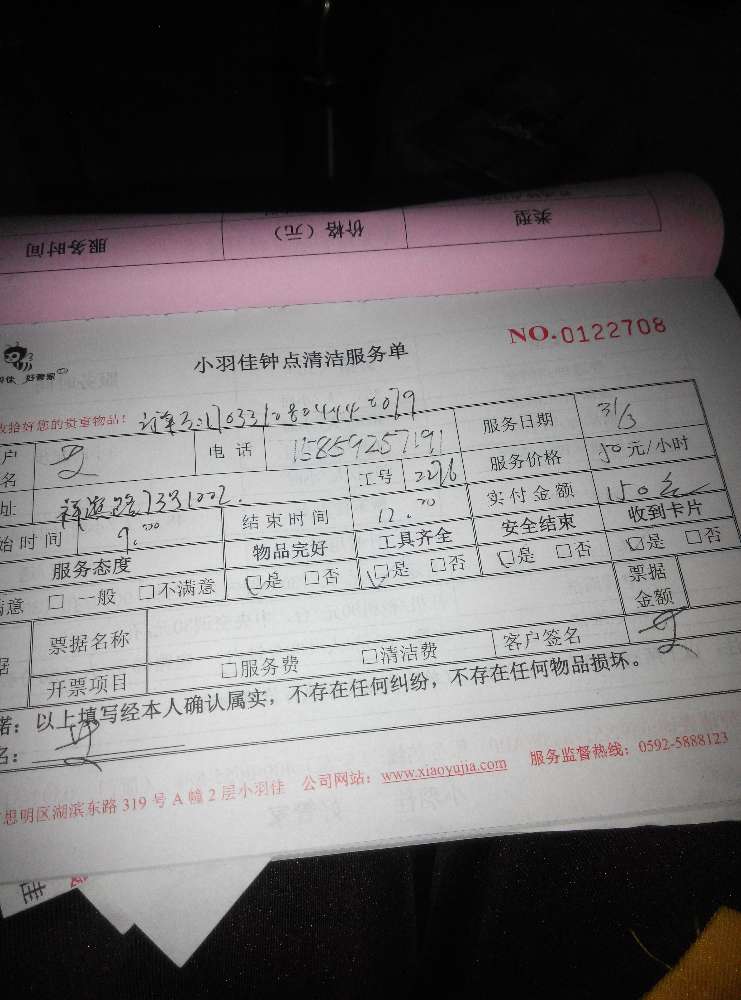 类型 价格（元） 服务时间
NO.0122708
小羽佳钟点清洁服务单
好管家
收拾好您的贵重物品： 订单号:1703310804442079
户名 电话 15859257191 服务日期 31/3
址 祥 路 1002 工号 2276 服务价格 50元/小时
始时间 9:00 结束时间 12:00 实付金额 150元
服务态度 物品完好 工具齐全 安全结束 收到卡片
满意 □ 一般 □不满意 □是 □否 □是 □否 □是 □否 □是 □否
据 票据名称 票据金额
开票项目 □服务费 □清洁费 客户签名
诺：以上填写经本人确认属实，不存在任何纠纷，不存在任何物品损坏。
名：
思明区湖滨东路 319 号 A 幢 2 层小羽佳 公司网站：www.xiaoyujia.com 服务监督热线：0592-5888123